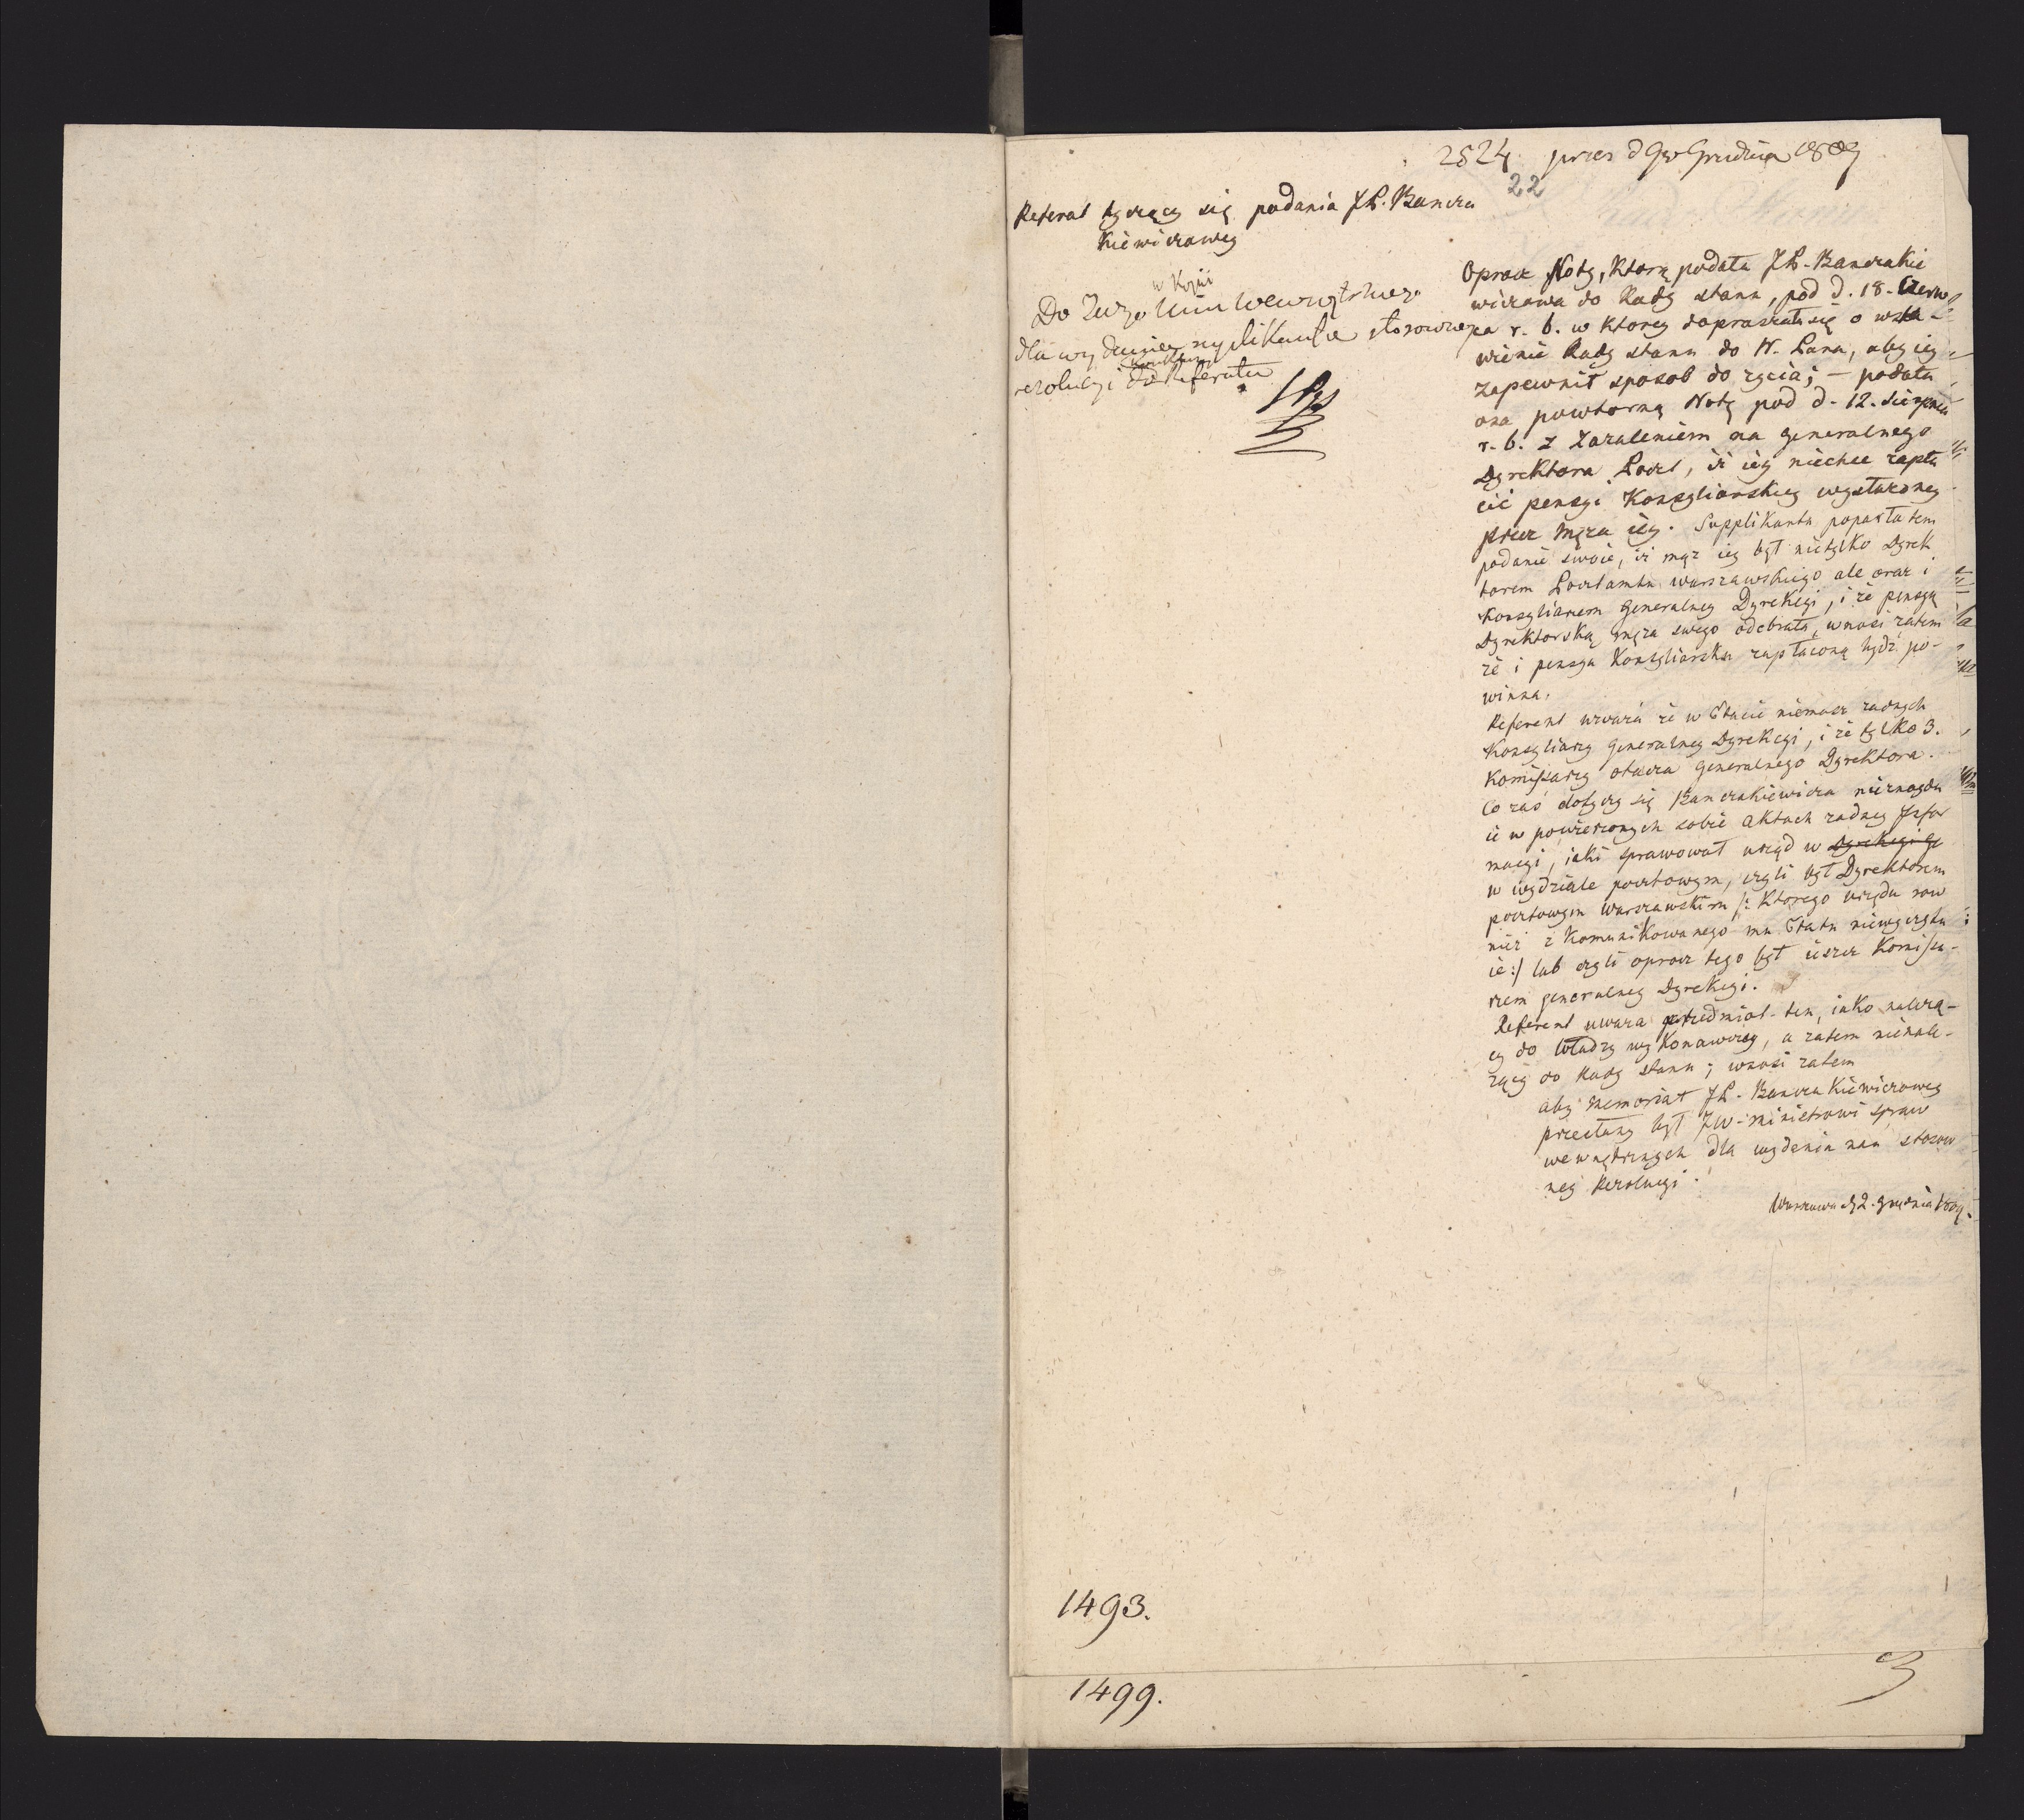 2524 pres d 9 Grudnia 1809
22
Referat tyczący się podania JP. Bancza
kiewiczowey
w kopii
Do Jwgo Min Wewnętrznego
dla wydania suplikantce stosowney
rezolucyi do Referatu
Oprocz Noty, ktorą podała JP. Banczakie
wiczowa do Rady stanu, pod d. 18. Czerw
ca r. b. w ktorey dopraszała się o wsta
wienie Rady stanu do N. Pana, aby iey
zapewnił sposob do życia; — podała
ona powtorną Notę pod d. 12. Sierpnia
r. b. z Zażaleniem na generalnego
Dyrektora Poczt, iż iey niechce zapła
cić pensyi Konsyliarskiey wysłużoney
przez męża iey. Supplikantka poparła tem
podanie swoie, iż mąż iey był nietylko Dyrek
torem Pocztamtu warszawskiego ale oraz i
Konsyliarzem Generalney Dyrekcyi, i że pensyą
Dyrektorską męża swego odebrała, wnosi zatem
że i pensya Konsyliarska zapłaconą bydź po-
winna.
Referent uważa że w Etacie niemasz żadnych
Konsyliarzy Generalney Dyrekcyi, i że tylko 3.
Komissarzy otacza Generalnego Dyrektora.
Co zaś dotyczy się Banczakiewicza nieznaydu
ie w powierzonych sobie aktach żadney Infor
macyi, iaki sprawował urząd w Dyrekcyi Ge
w wydziale pocztowym, czyli był Dyrektorem
pocztowym Warszawskim /: ktorego urzędu row
nież z komunikowanego mu Etatu niewyczytu
ie :/ lub czyli oprocz tego był ieszcze Komissa-
rzem generalney Dyrekcyi.
Referent uwaza przedmiot ten, iako należą-
cy do Władzy wykonawczey, a zatem nienale-
żący do Rady stanu; wnosi zatem
aby memoriał JP. Banczakiewiczowey
przesłany był JW. Ministrowi spraw
wewnętrznych dla wydania nań stosow
ney Rezolucyi.
Warszawa d 2. Grudnia 1809.
1493.
1499.
3